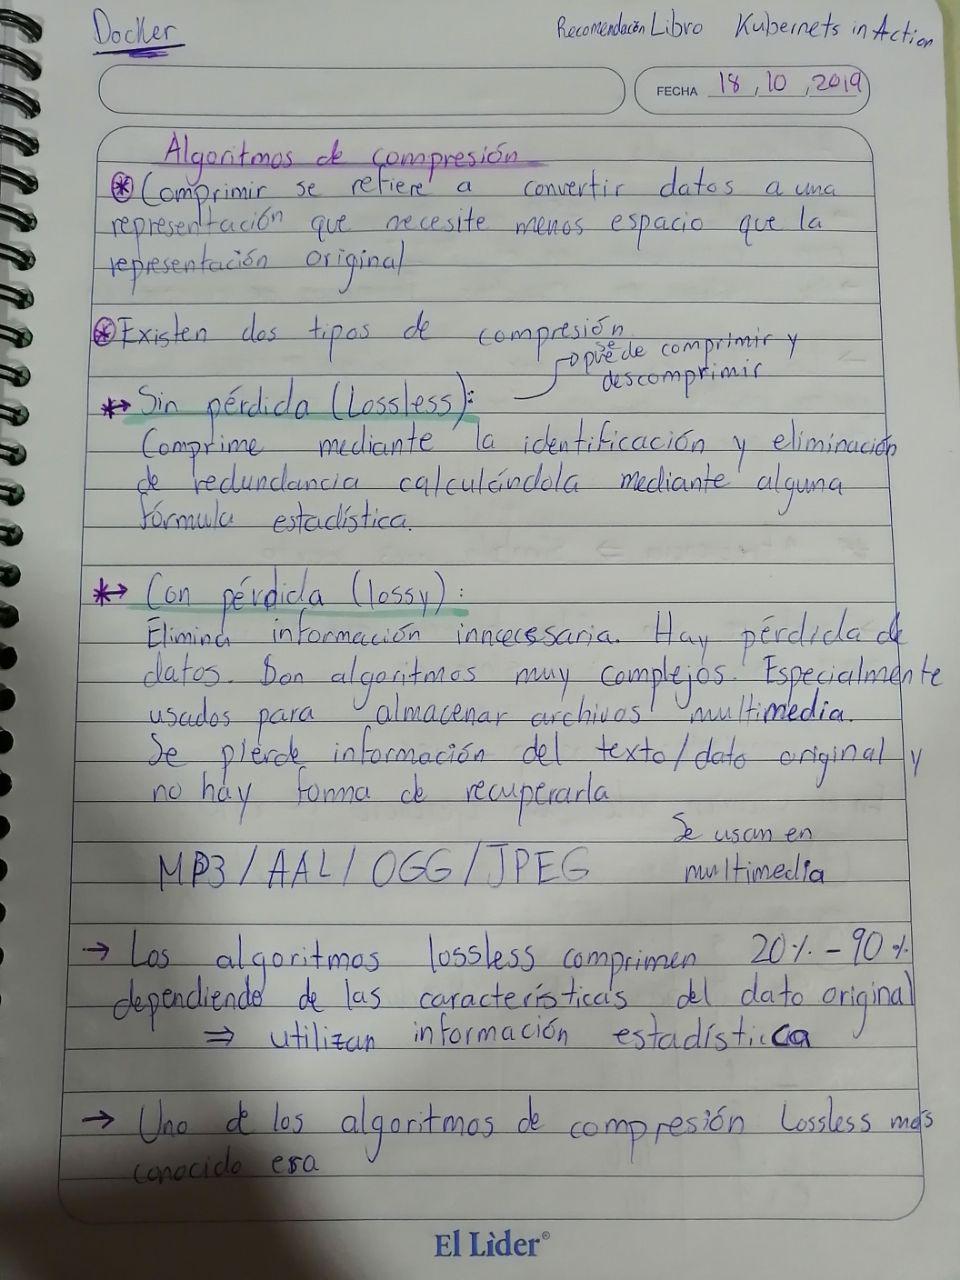 Docker
Recomendación Libro Kubernets in Action
FECHA 18, 10, 2019
Algoritmos de compresión
* Comprimir se refiere a convertir datos a una
representación que necesite menos espacio que la
representación original
* Existen dos tipos de compresión
se
→ puede comprimir y
descomprimir
*→ Sin pérdida (Lossless):
Comprime mediante la identificación y eliminación
de redundancia calculándola mediante alguna
fórmula estadística.
*→ Con pérdida (lossy):
Elimina información innecesaria. Hay pérdida de
datos. Son algoritmos muy complejos. Especialmente
usados para almacenar archivos multimedia.
Se pierde información del texto/dato original y
no hay forma de recuperarla
Se usan en
MP3/AAL/OGG/JPEG multimedia
→ Los algoritmos lossless comprimen 20% - 90%
dependiendo de las características del dato original
⇒ utilizan información estadística
→ Uno de los algoritmos de compresión Lossless más
conocido era
El Lìder®